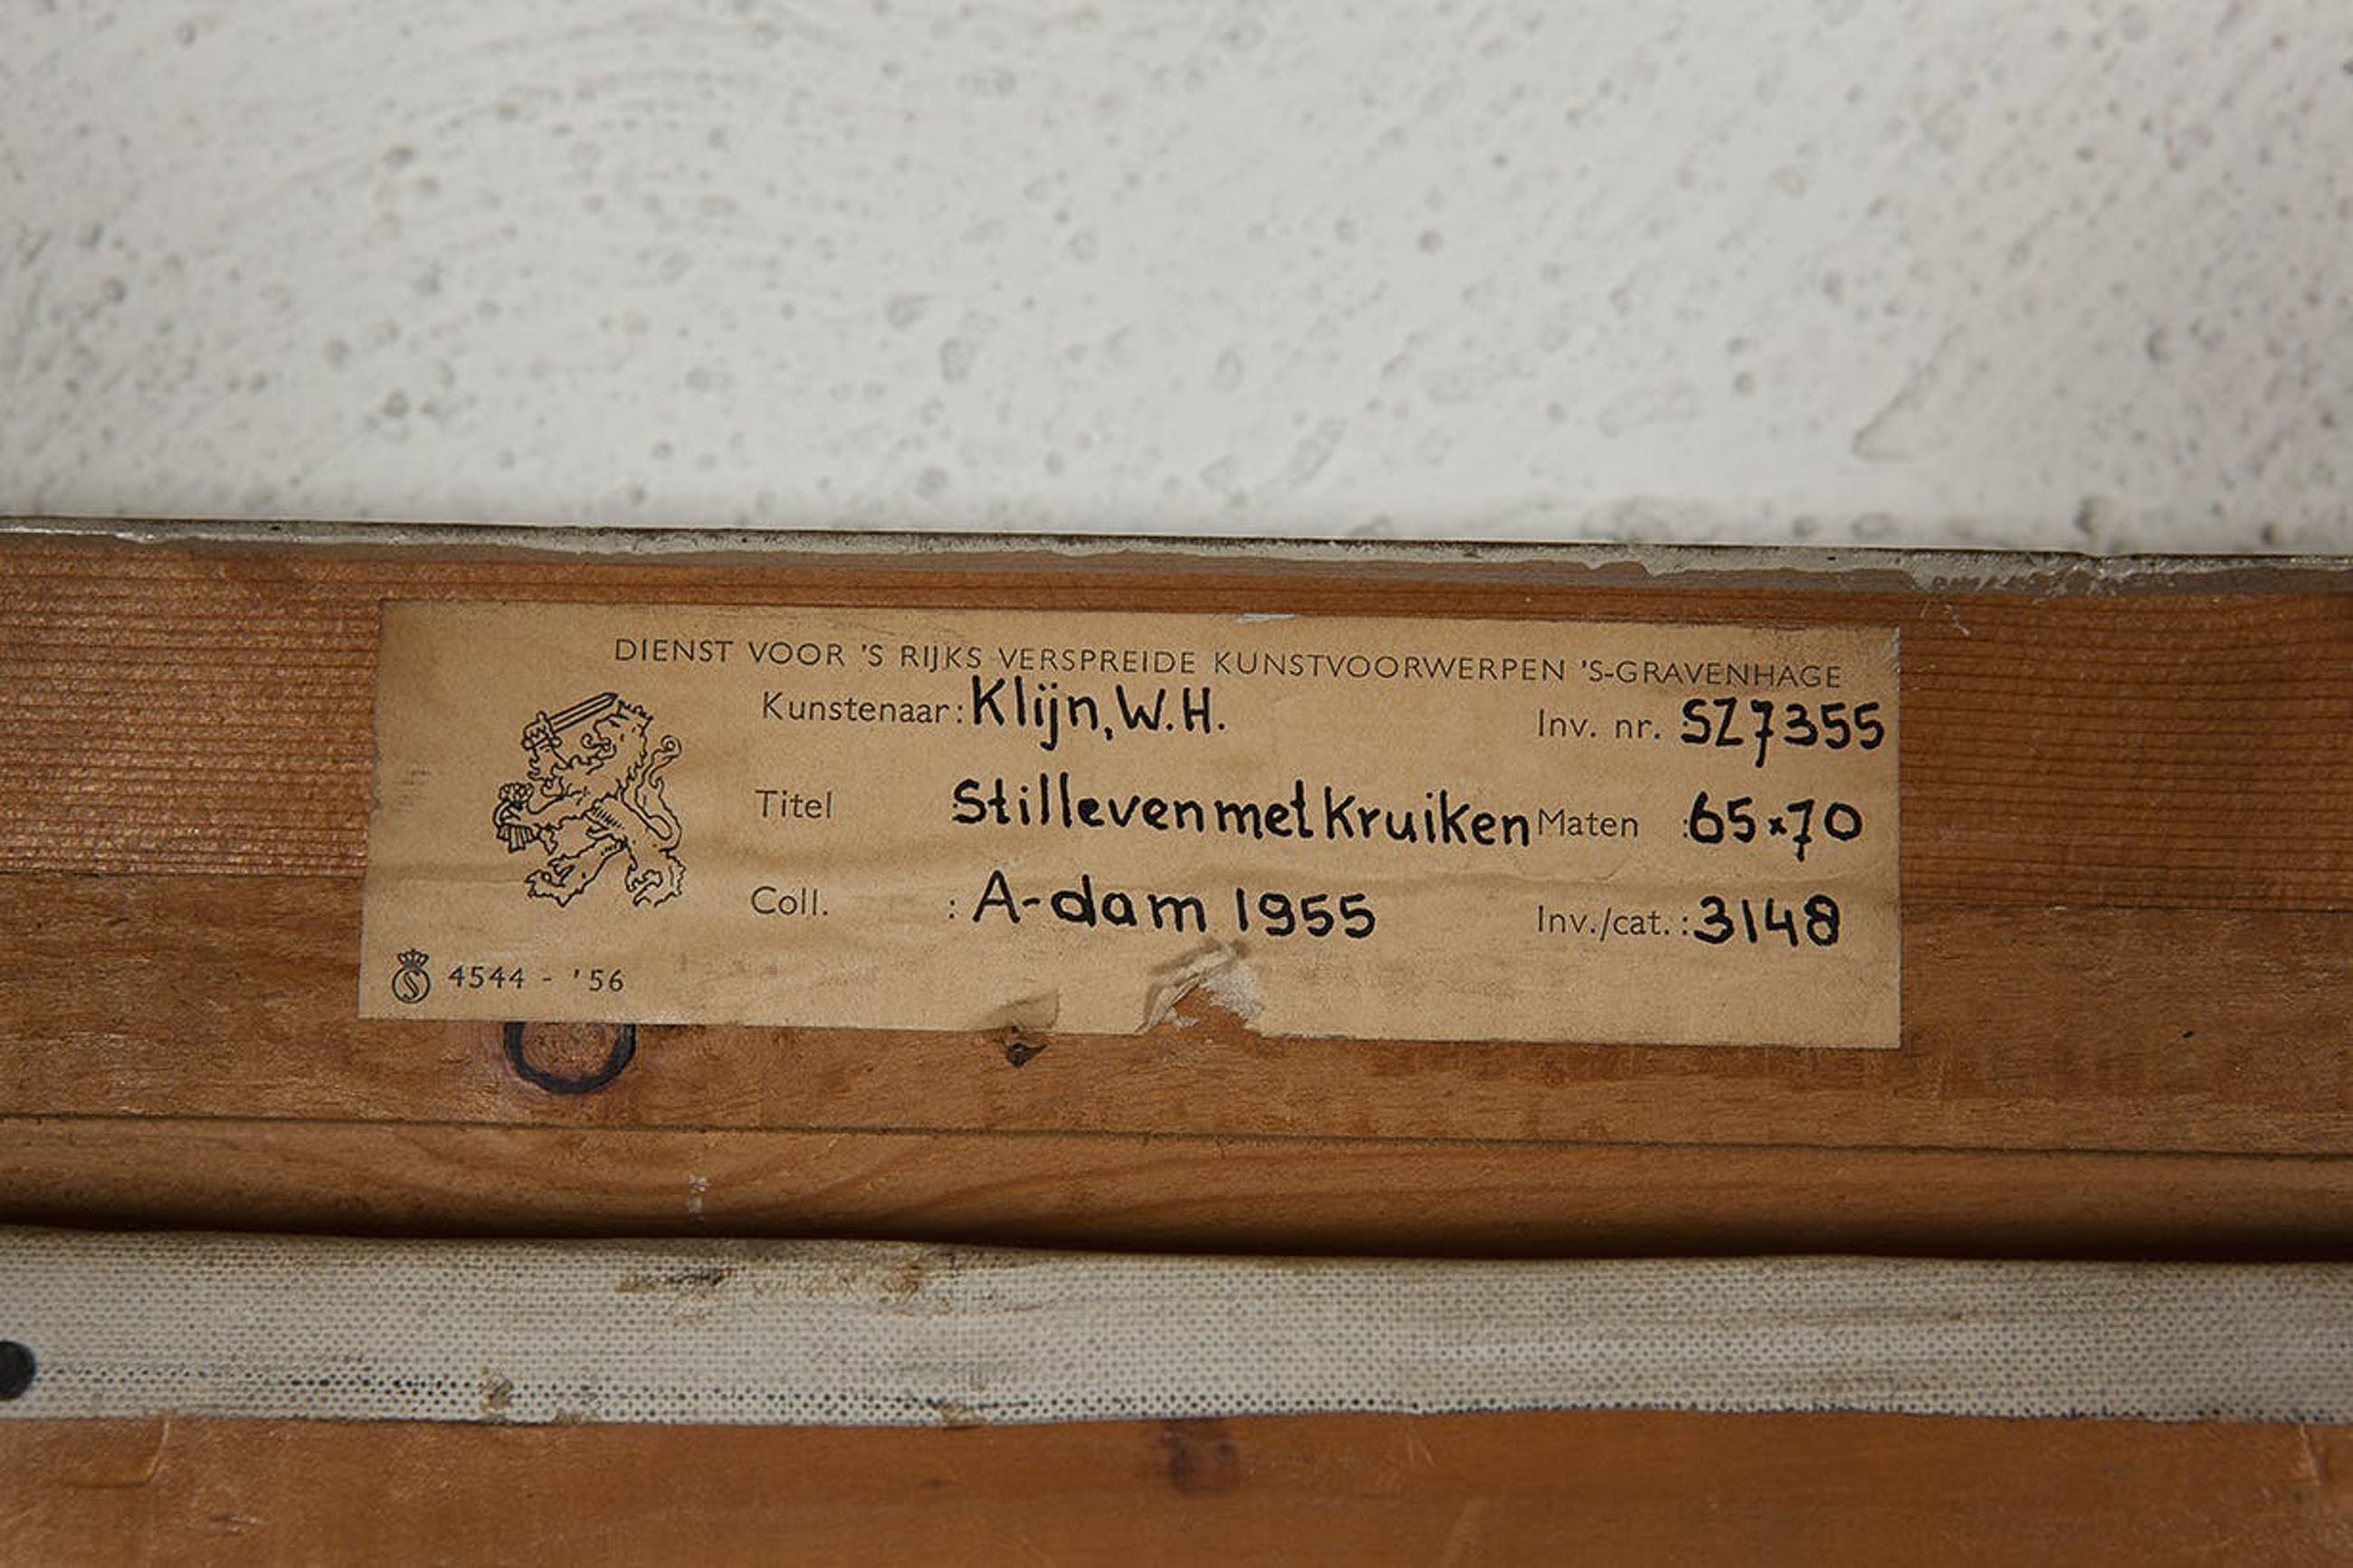 DIENST VOOR 'S RIJKS VERSPREIDE KUNSTVOORWERPEN 'S-GRAVENHAGE
Kunstenaar: Klijn, W.H. Inv. nr. SZ7355
Titel Stilleven met Kruiken Maten : 65x70
Coll. : A-dam 1955 Inv./cat. : 3148
S 4544 - '56